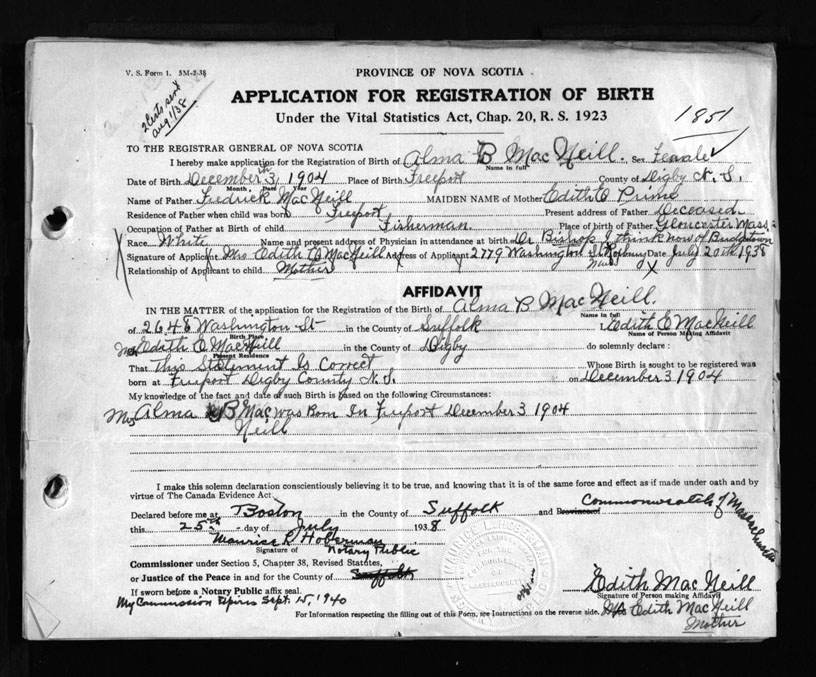 V. S. Form 1. 5M-2-38
PROVINCE OF NOVA SCOTIA
2 Certs sent
Aug 1/38
APPLICATION FOR REGISTRATION OF BIRTH
Under the Vital Statistics Act, Chap. 20, R. S. 1923
1851
TO THE REGISTRAR GENERAL OF NOVA SCOTIA
I hereby make application for the Registration of Birth of Alma B MacNeill. Sex Female
Name in full
Date of Birth December 3th 1904 Place of Birth Freeport County of Digby N. S.
Month, Date Year
Name of Father Fredrick MacNeill MAIDEN NAME of Mother Edith E Prime
Residence of Father when child was born Freeport Present address of Father Deceased
Occupation of Father at Birth of child Fisherman. Place of birth of Father Gloucester Mass
Race White Name and present address of Physician in attendance at birth Dr Bishop I think now of Bridgetown
Signature of Applicant Mrs Edith E MacNeill Address of Applicant 2779 Washington St Roxbury Date July 20th 1938
Mass
Relationship of Applicant to child Mother
AFFIDAVIT
IN THE MATTER of the application for the Registration of the Birth of Alma B MacNeill.
Name in full
of 2648 Washington St in the County of Suffolk I, Edith E MacNeill
Birth Place Name of Person Making Affidavit
Mrs Edith E MacNeill in the County of Digby do solemnly declare :
Present Residence
That this Statement Is Correct Whose Birth is sought to be registered was
born at Freeport Digby County N. S. on December 3 1904
My knowledge of the fact and date of such Birth is based on the following Circumstances:
Mrs Alma B Mac was Born In Freeport December 3 1904
Neill
I make this solemn declaration conscientiously believing it to be true, and knowing that it is of the same force and effect as if made under oath and by
virtue of The Canada Evidence Act
Declared before me at Boston in the County of Suffolk and Province of Commonwealth of Massachusetts
this 25th day of July 1938
Maurice R Hoberman
Signature of Notary Public
Commissioner under Section 5, Chapter 38, Revised Statutes,
or Justice of the Peace in and for the County of Suffolk
If sworn before a Notary Public affix seal.
My Commission Expires Sept. 15, 1940
Edith MacNeill
Signature of Person making Affidavit
For Information respecting the filling out of this Form, see Instructions on the reverse side.
Mrs Edith MacNeill
Mother